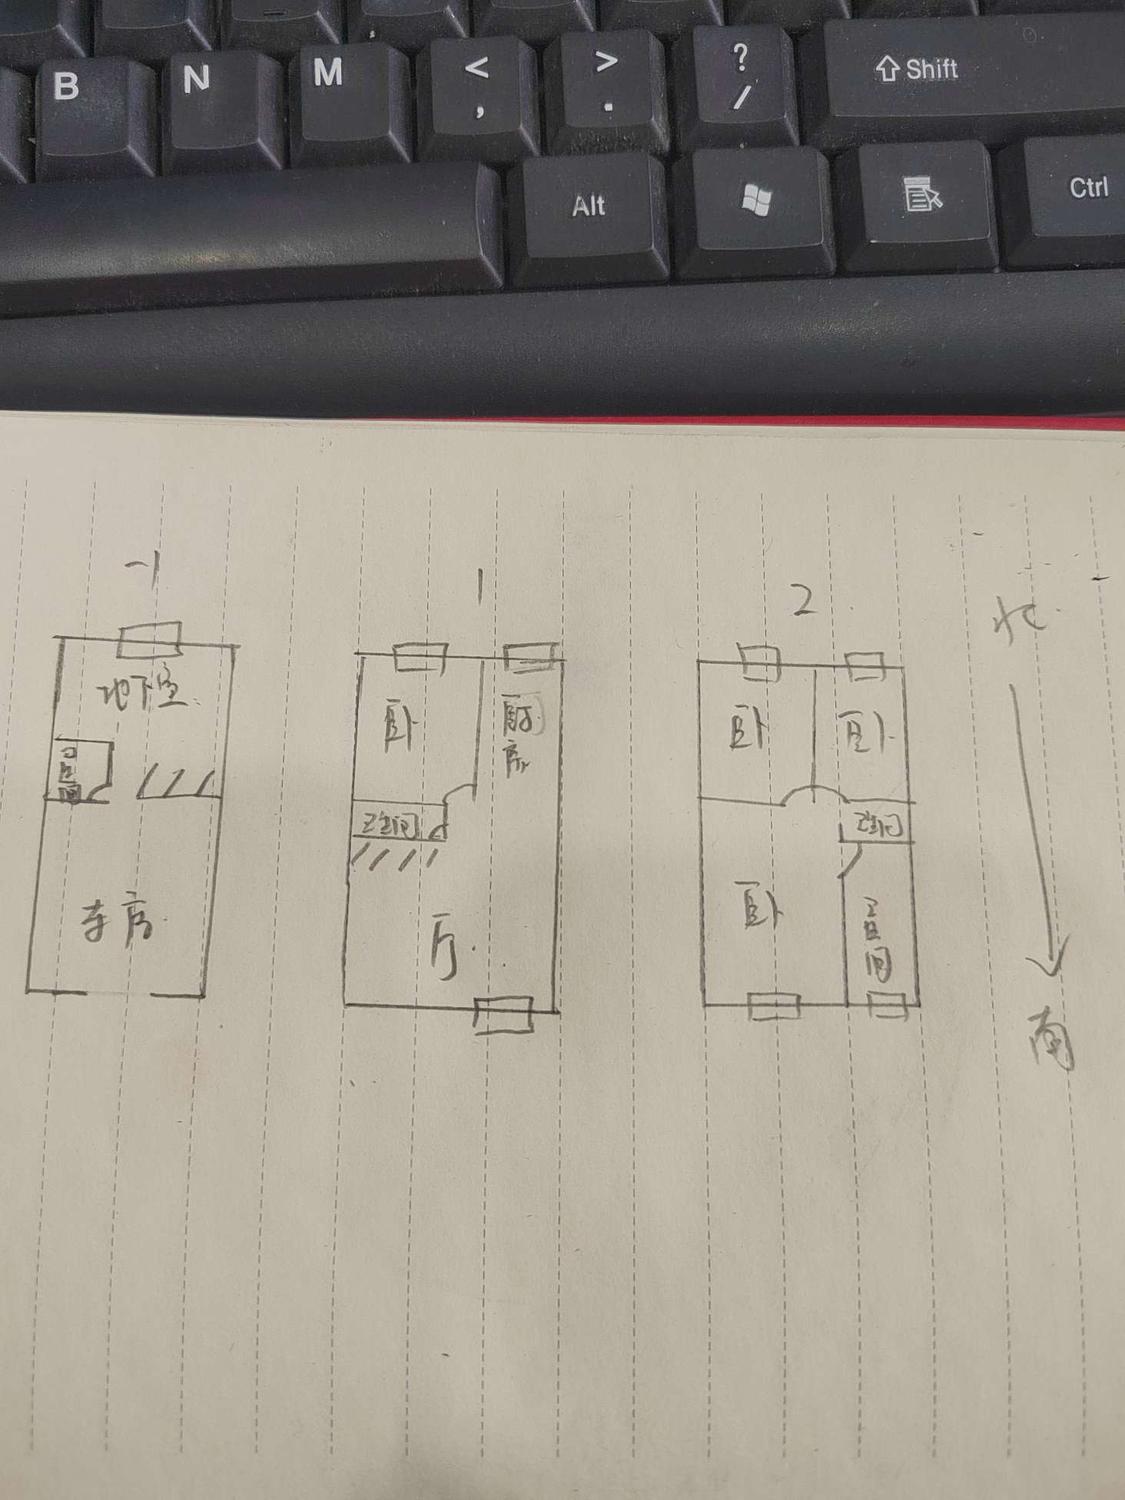 B N M < , > . ? / Shift
Alt Ctrl
-1
地下室
卫生间
车库
1
卧
厨房
卫生间
厅
2
卧
卧
卫生间
卧
卫生间
北
南